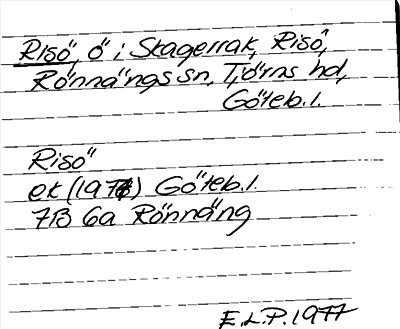 Risö, ö i Skagerrak, Risö,
Rönnängs sn, Tjörns hd,
Göteb. l.
Risö
ek (1976) Göteb. l.
7B 6a Rönnäng
E.L.P. 1977